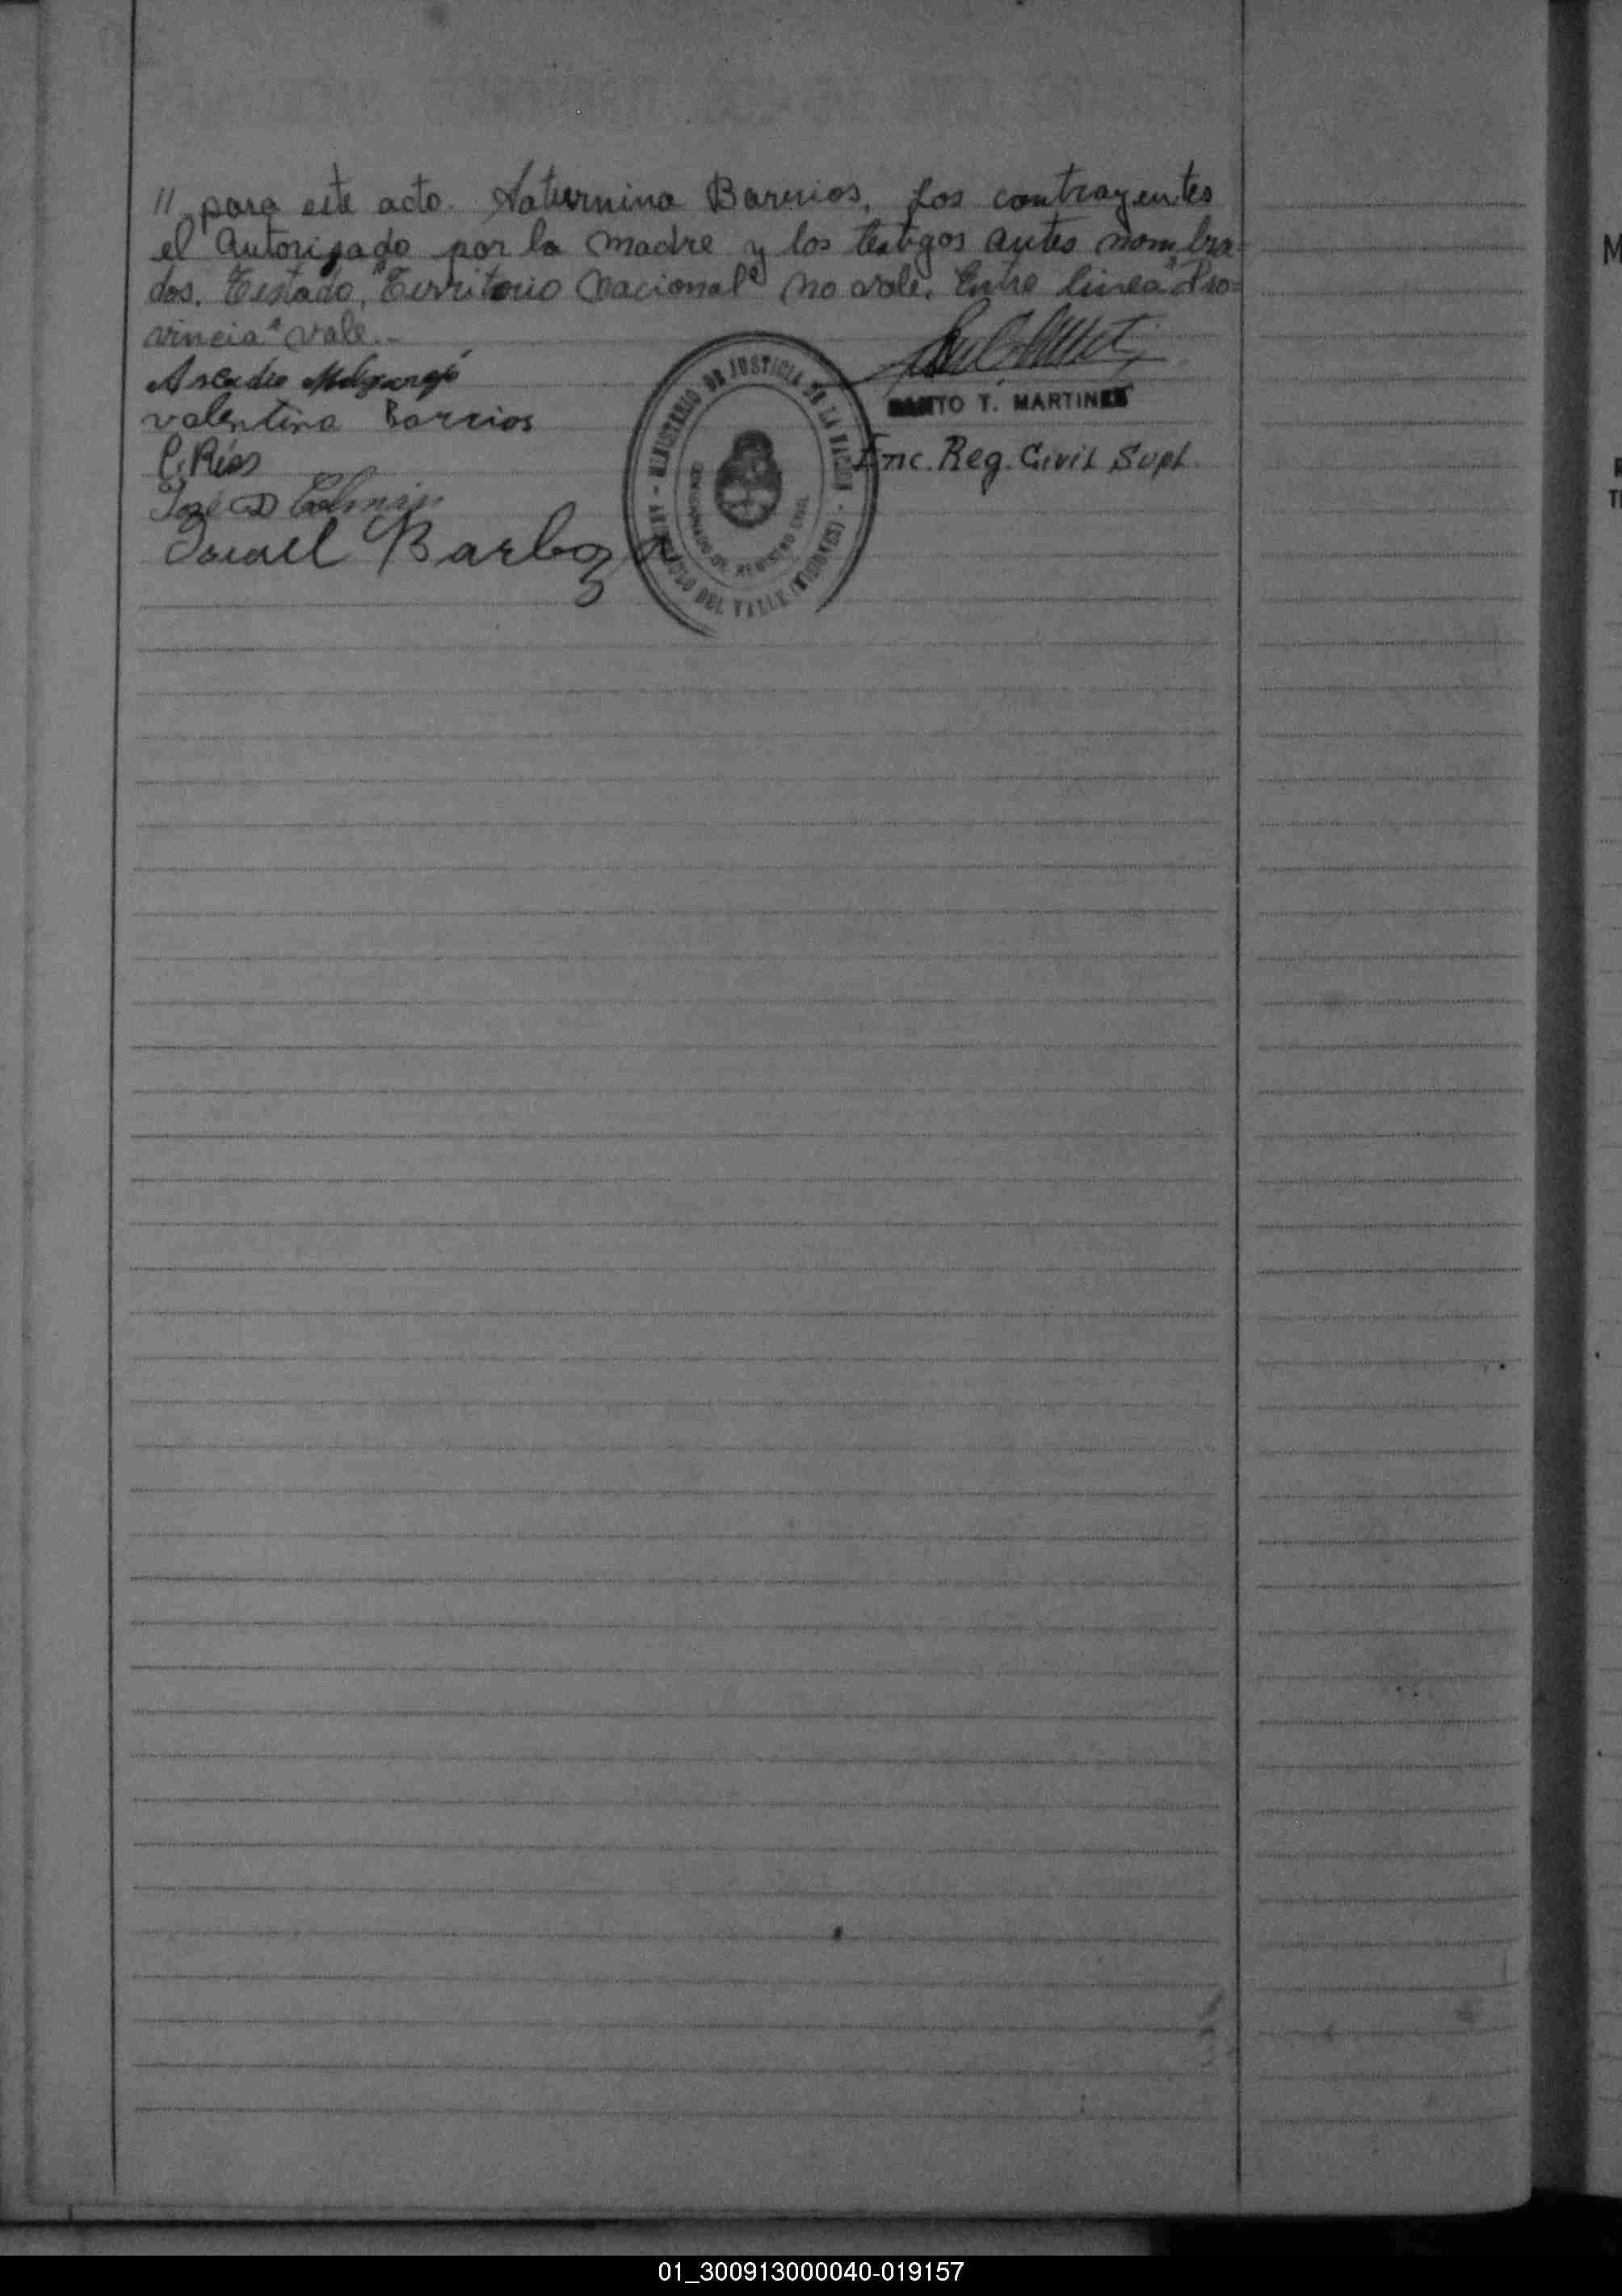 // para este acto. Saturnina Barrios, Los contrayentes
el Autorizado por la madre y los testigos antes nombra=
dos. Testado, "Territorio Nacional" no vale. Entre linea "Pro=
vincia" vale.-
Arcadio Melgarejo
valentina Barrios
C. Ríos
José D Colman
Barboza
SANTO T. MARTINEZ
Enc. Reg. Civil Supl.
- MINISTERIO DE JUSTICIA DE LA NACION -
ARISTOBULO DEL VALLE (MISIONES)
ENCARGADO DEL REGISTRO CIVIL
M
01_300913000040-019157